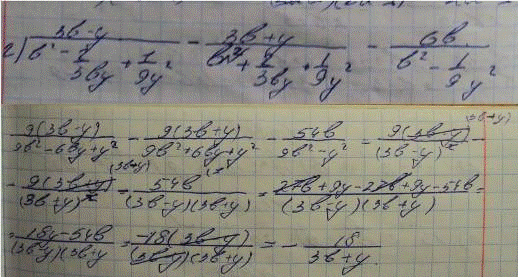 2) (3b-y)/(b² - 2/3by + 1/9y²) - (3b+y)/(b² + 2/3by + 1/9y²) - 6b/(b² - 1/9y²)
9(3b-y)/(9b²-6by+y²) - 9(3b+y)/(9b²+6by+y²) - 54b/(9b²-y²) = 9(3b-y)/(3b-y)² -
- 9(3b+y)/(3b+y)² - 54b/((3b-y)(3b+y)) = (27b+9y-27b+9y-54b)/((3b-y)(3b+y)) =
= (18y-54b)/((3b-y)(3b+y) = -18(3b-y)/((3b-y)(3b+y)) = - 18/(3b+y)